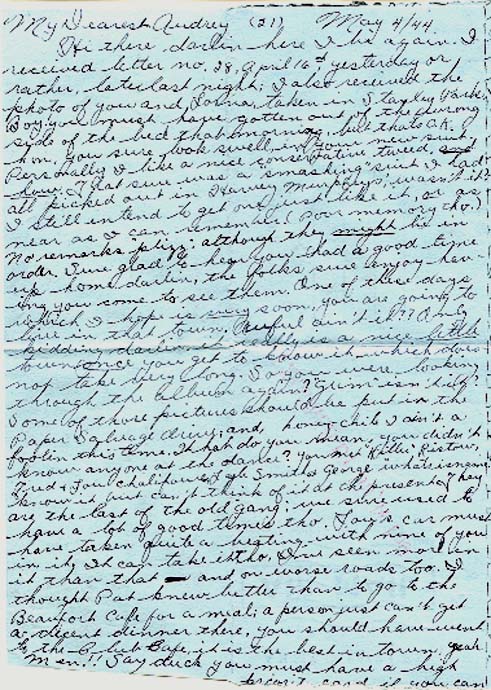 My Dearest Audrey (21) May 4/44
Hi there darlin here I be again. I
received letter no. 28, April 16th yesterday or
rather, late last night; I also received the
photo of you and Lorna, taken in Stanley Park.
Boy, you must have gotten out of the wrong
side of the bed that morning, but thats O.K.
hon, you sure look swell in your new suit,
Personally I like a nice conservative tweed,
That sure was a "smashing" suit I had
all picked out in Harvey Murphys, wasn't it?
I still intend to get one just like it, or as
near as I can remember (poor memory tho.)
No remarks pliz; although they might be in
order. Sure glad to hear you had a good time
up home darlin, the folks sure enjoy hav-
ing you come to see them. One of these days
which I hope is very soon, you are going to
live in that town, Awful ain't it?? Only
kidding darlin it really is a nice little
town once you get to know it which does
not take very long. So you were looking
through the album again? "Grim" isn't it?
Some of those pictures should be put in the
Paper Salvage drive; and, honey-chile I ain't a
foolin this time. What do you mean, you didn't
know anyone at the dance? you met
Fred & Smith & George whatsisname
know it but can't think of it at the present. They
are the last of the old gang; we sure used to
have a lot of good times tho. Fay's car must
have taken quite a beating with nine of you
in it, It can take it tho, I've seen more in
it than that — and on worse roads too. I
thought Pat knew better than to go to the
Beaufort Cafe for a meal; a person just can't get
a decent dinner there, you should have went
to the Club Cafe, it is the best in town, yeah
Man!! Say chick you must have a high
card if you can